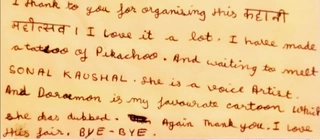 I thank to you for organizing this कहानी
महोत्सव। I love it a lot. I have made
a tattoo of Pikachoo. And waiting to meet
SONAL KAUSHAL. She is a voice Artist.
And Doraemon is my favourate cartoon which
she has dubbed. Again Thank you. I love
this fair. BYE-BYE.